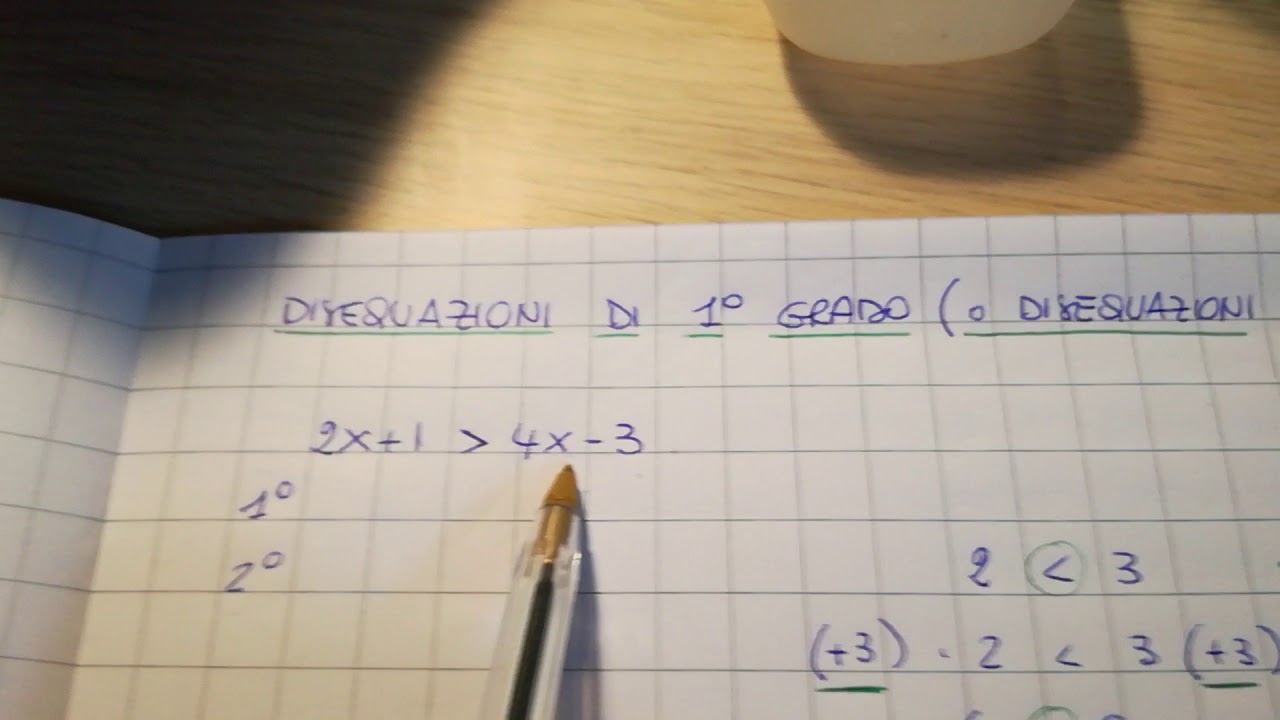 DISEQUAZIONI DI 1° GRADO (o DISEQUAZIONI
2x+1 > 4x-3
1°
2°
2 < 3
(+3) · 2 < 3 (+3)